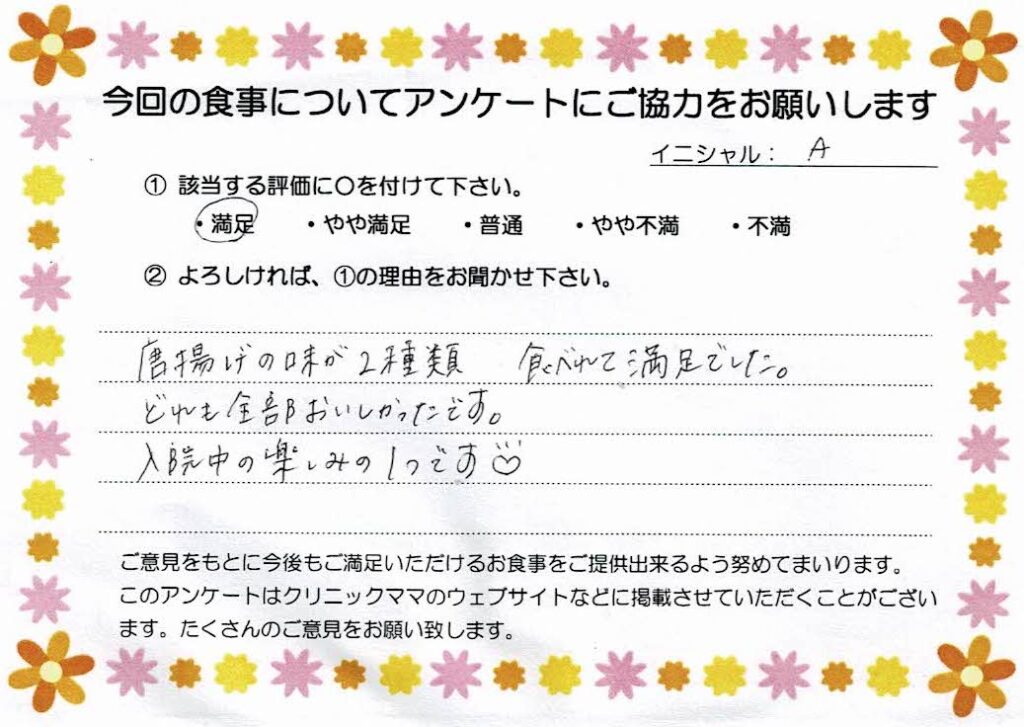 今回の食事についてアンケートにご協力をお願いします
イニシャル： A
① 該当する評価に○を付けて下さい。
・満足 ・やや満足 ・普通 ・やや不満 ・不満
② よろしければ、①の理由をお聞かせ下さい。
唐揚げの味が2種類 食べれて満足でした。
どれも全部おいしかったです。
入院中の楽しみの1つです
ご意見をもとに今後もご満足いただけるお食事をご提供出来るよう努めてまいります。
このアンケートはクリニックママのウェブサイトなどに掲載させていただくことがござい
ます。たくさんのご意見をお願い致します。